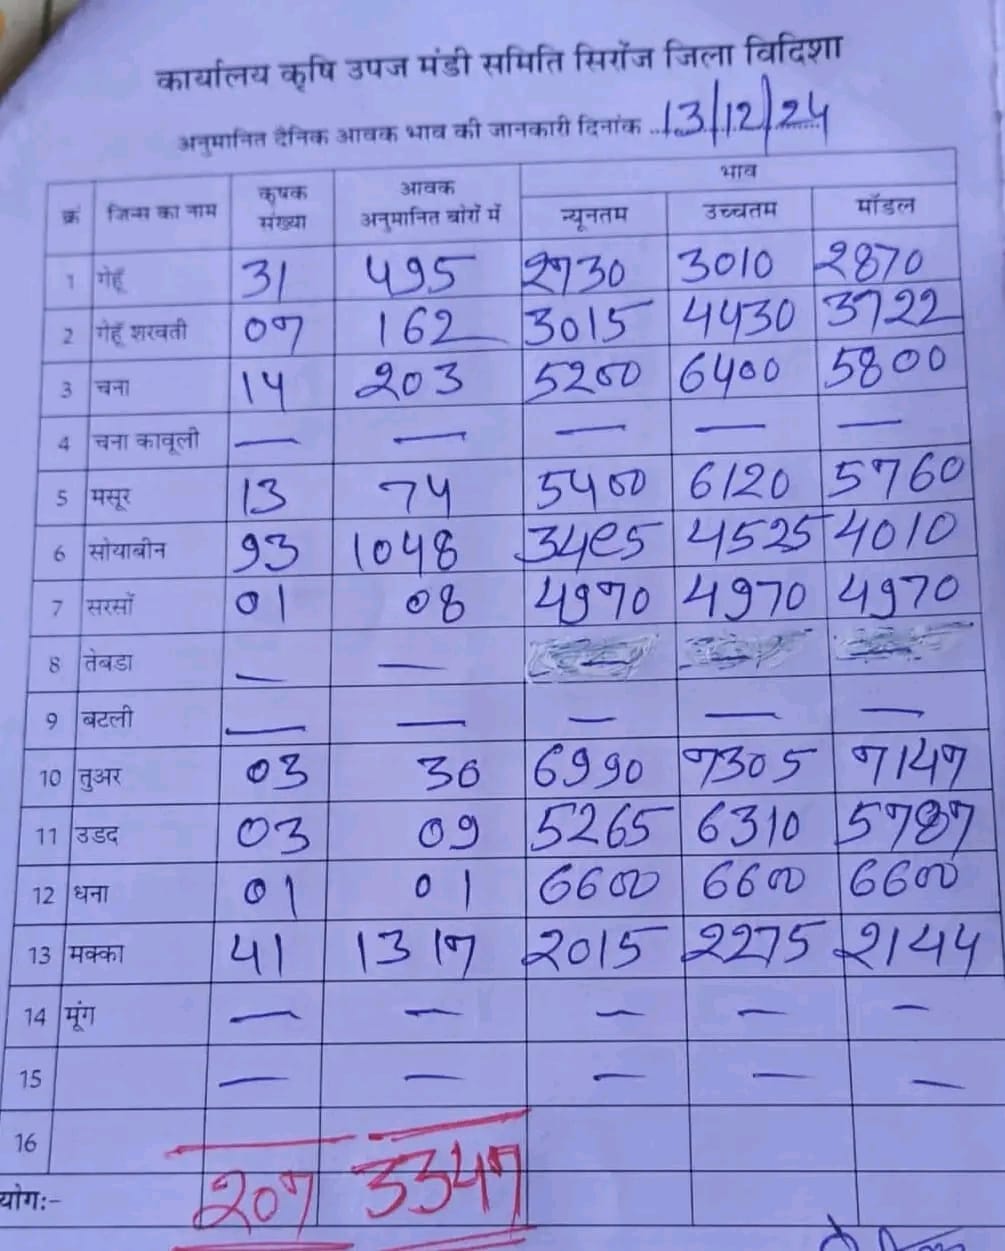 कार्यालय कृषि उपज मंडी समिति सिरोंज जिला विदिशा
अनुमानित दैनिक आवक भाव की जानकारी दिनांक 13/12/24
क्रं जिन्स का नाम कृषक संख्या आवक अनुमानित बोरों में भाव
न्यूनतम उच्चतम मॉडल
1 गेहूँ 31 495 2730 3010 2870
2 गेहूँ शरवती 07 162 3015 4430 3722
3 चना 14 203 5200 6400 5800
4 चना कावूली — — — — —
5 मसूर 13 74 5400 6120 5760
6 सोयाबीन 93 1048 3495 4525 4010
7 सरसों 01 08 4970 4970 4970
8 तेबडा — —
9 बटली — — — — —
10 तुअर 03 30 6990 7305 7147
11 उडद 03 09 5265 6310 5787
12 धना 01 01 6600 6600 6600
13 मक्का 41 1317 2015 2275 2144
14 मूंग — — — — —
15 — — — — —
16
योग:- 207 3347